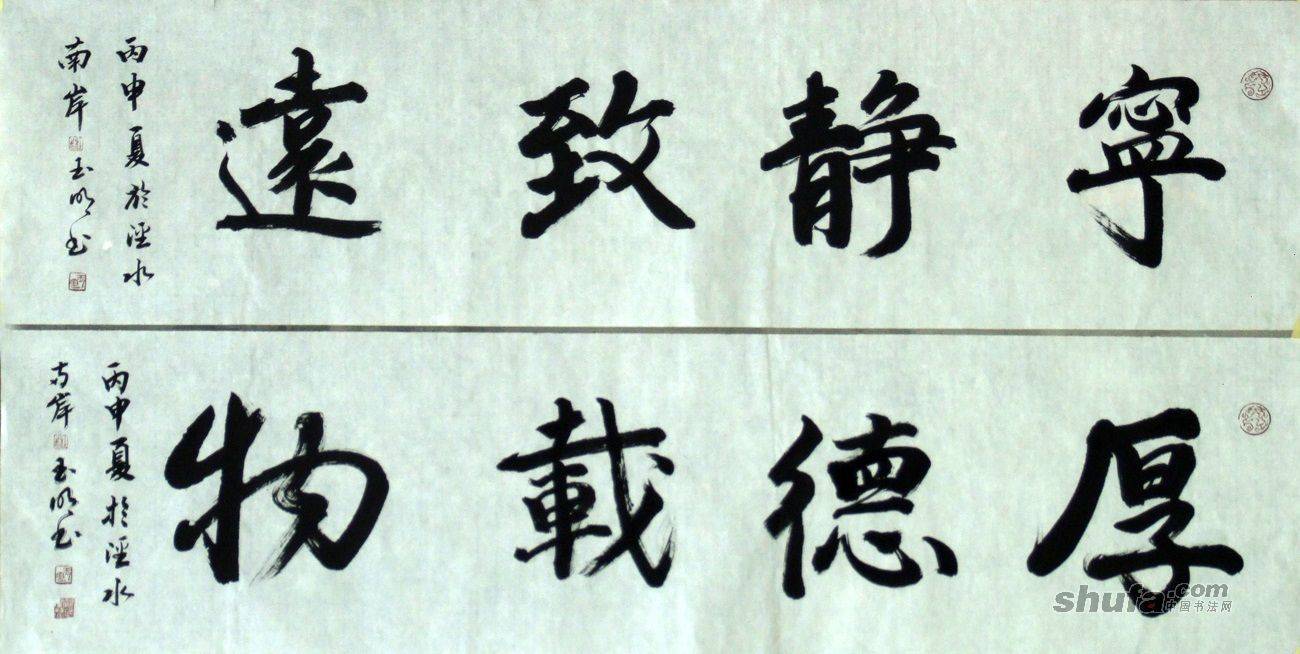 寧靜致遠
丙申夏於涇水
南岸玉明書
厚德載物
丙申夏於涇水
南岸玉明書
shufa.com
中国书法网